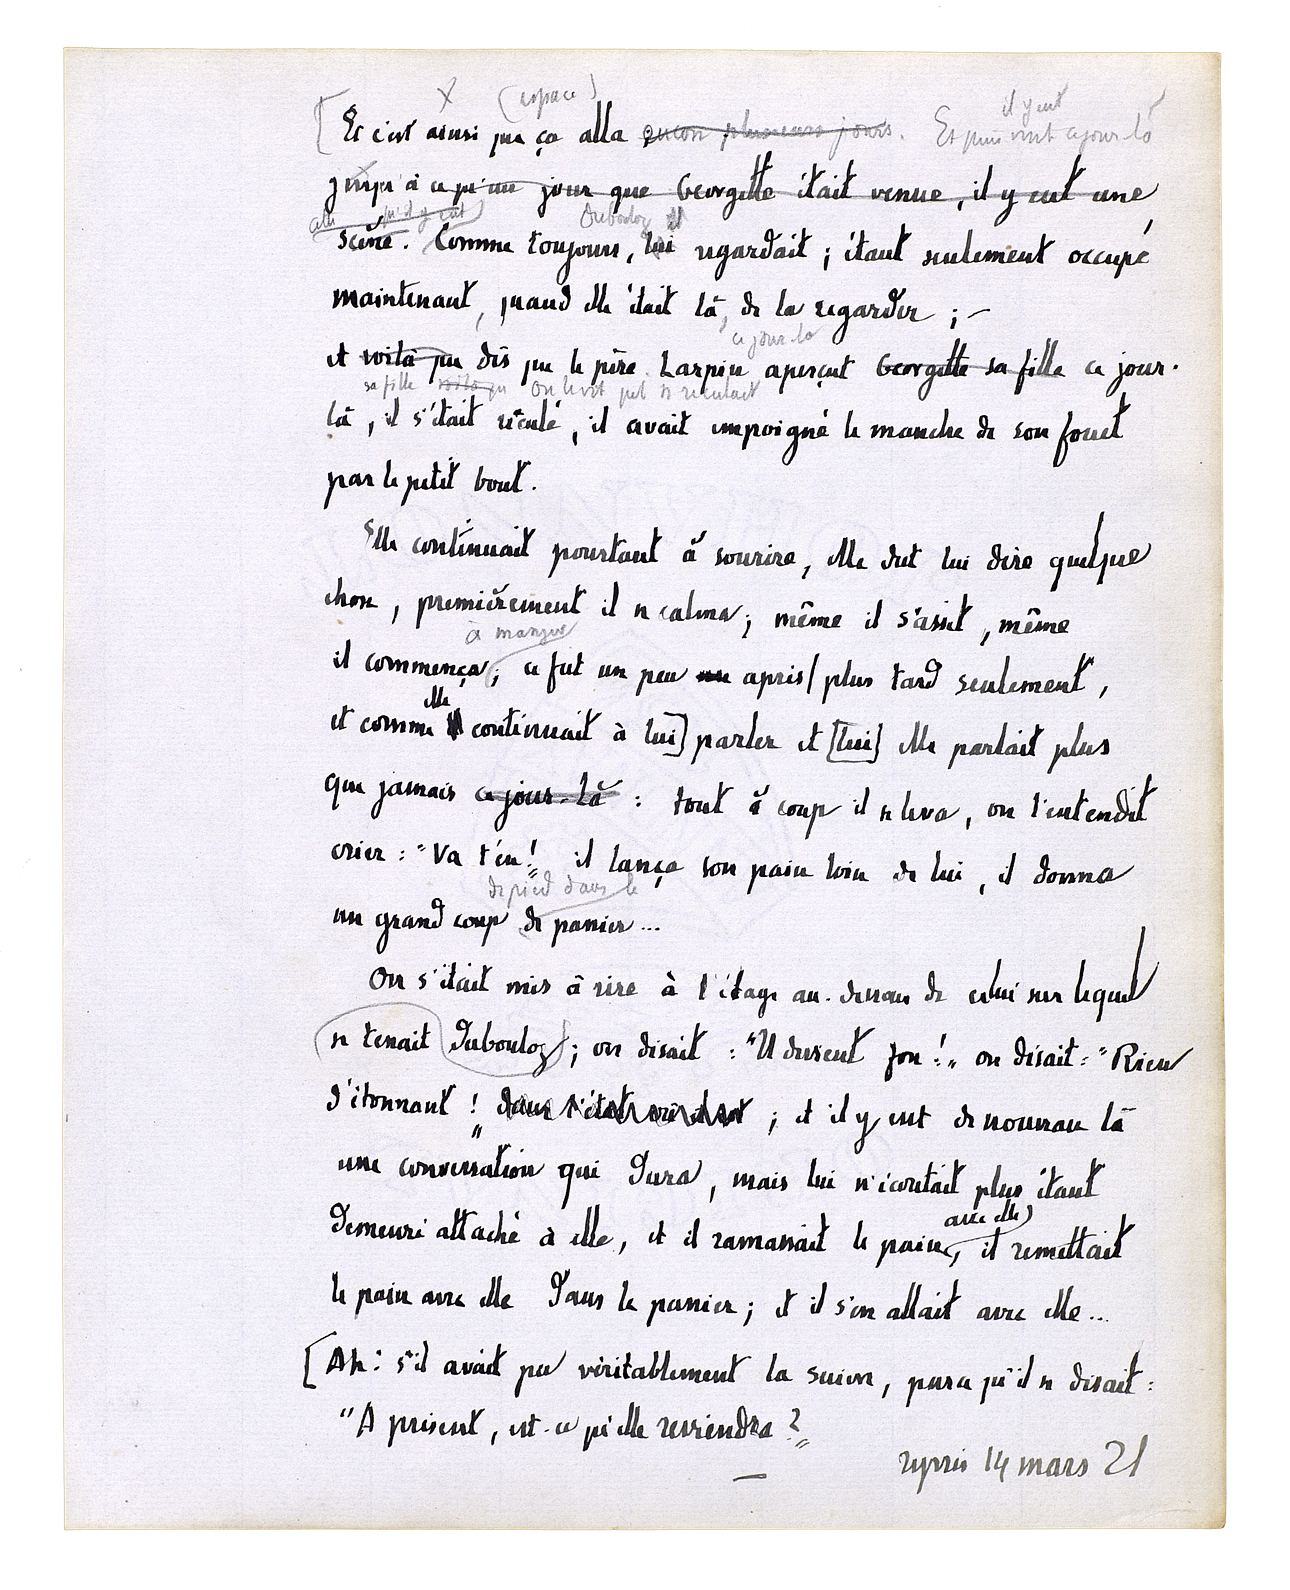 (espace)
il y eut
Et c'est ainsi que ça alla encore plusieurs jours. Et puis vint ce jour-là
jusqu'à ce qu'un jour que Georgette était venue, il y eut une
qu'il y eut Dubouloz
scène. Comme toujours, lui regardait ; étant seulement occupé
maintenant, quand elle était là, de la regarder ; –
ce jour-là
et voilà que dès que le père Larpin aperçut Georgette sa fille ce jour-
sa fille voilà qu On le vit qui se reculait
là, il s'était reculé, il avait empoigné le manche de son fouet
par le petit bout.
Elle continuait pourtant à sourire, elle dut lui dire quelque
chose, premièrement il se calma ; même il s'assit, même
à manger
il commença ; ce fut un peu après/plus tard seulement,
elle
et comme continuait à lui] parler et [lui] elle parlait plus
que jamais ce jour-là : tout à coup il se leva, on l'entendit
crier : "Va t'en !" il lança son pain loin de lui, il donna
de pied dans le
un grand coup de panier...
On s'était mis à rire à l'étage au-dessous de celui sur lequel
se tenait Dubouloz ; on disait : "Il devient fou !" on disait : "Rien
d'étonnant !" dans l'état ; et il y eut de nouveau là
une conversation qui dura, mais lui n'écoutait plus étant
avec elle
demeuré attaché à elle, et il ramassait le pain, il remettait
le pain avec elle dans le panier ; et il s'en allait avec elle...
[Ah ! s'il avait pu véritablement la suivre, parce qu'il se disait :
"A présent, est-ce qu'elle reviendra ?"
repris 14 mars 21